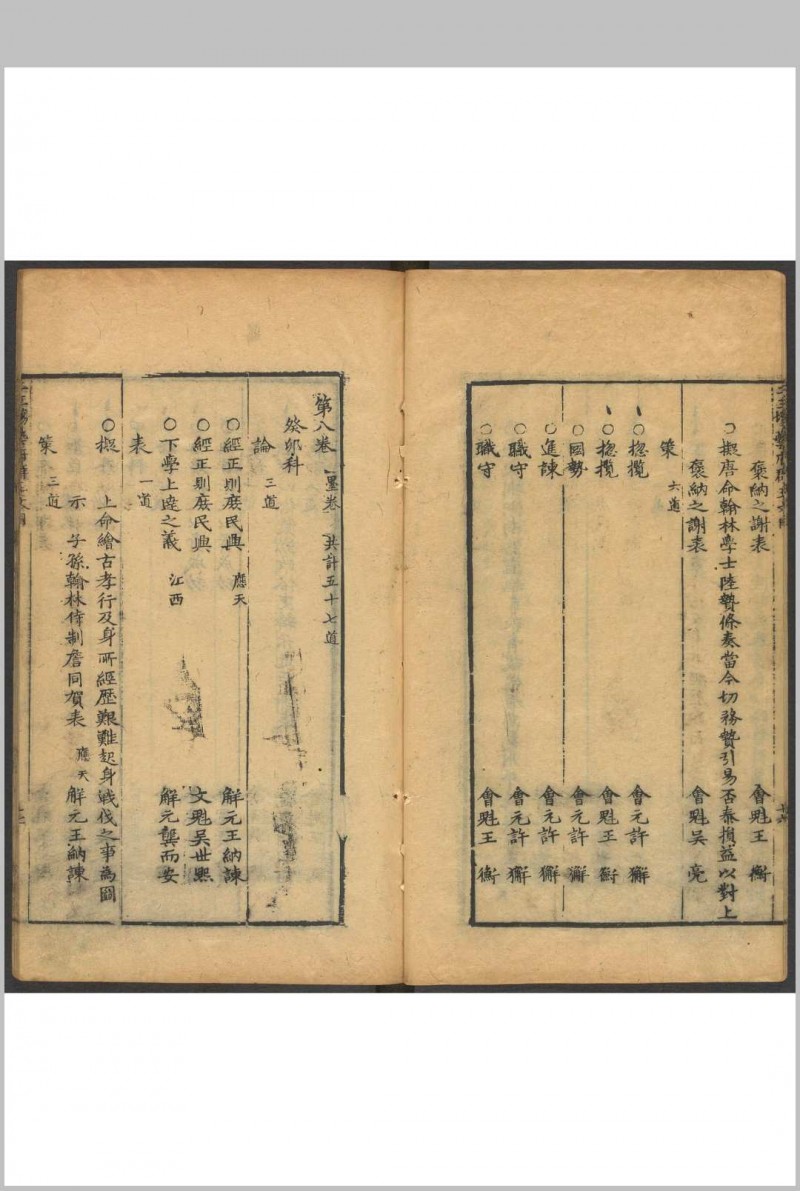 褒納之謝表 會魁王 衡
○擬唐命翰林學士陸贄條奏當今切務贄引易否泰損益以對上
褒納之謝表 會魁吳 亮
策 六道
○揔攬 會元許 獬
○揔攬 會魁王 衡
○國勢 會元許 獬
○進諫 會元許 獬
○職守 會元許 獬
○職守 會魁王 衡
第八卷 墨卷 共計五十七道
癸卯科
論 三道
○經正則庶民興 應天 解元王納諫
○經正則庶民興 文魁吳世熙
○下學上達之義 江西 解元龔而安
表 一道
○擬 上命繪古孝行及身所經歷艱難起身戰伐之事為圖
示 子孫翰林侍制詹同賀表 應天 解元王納諫
策 三道